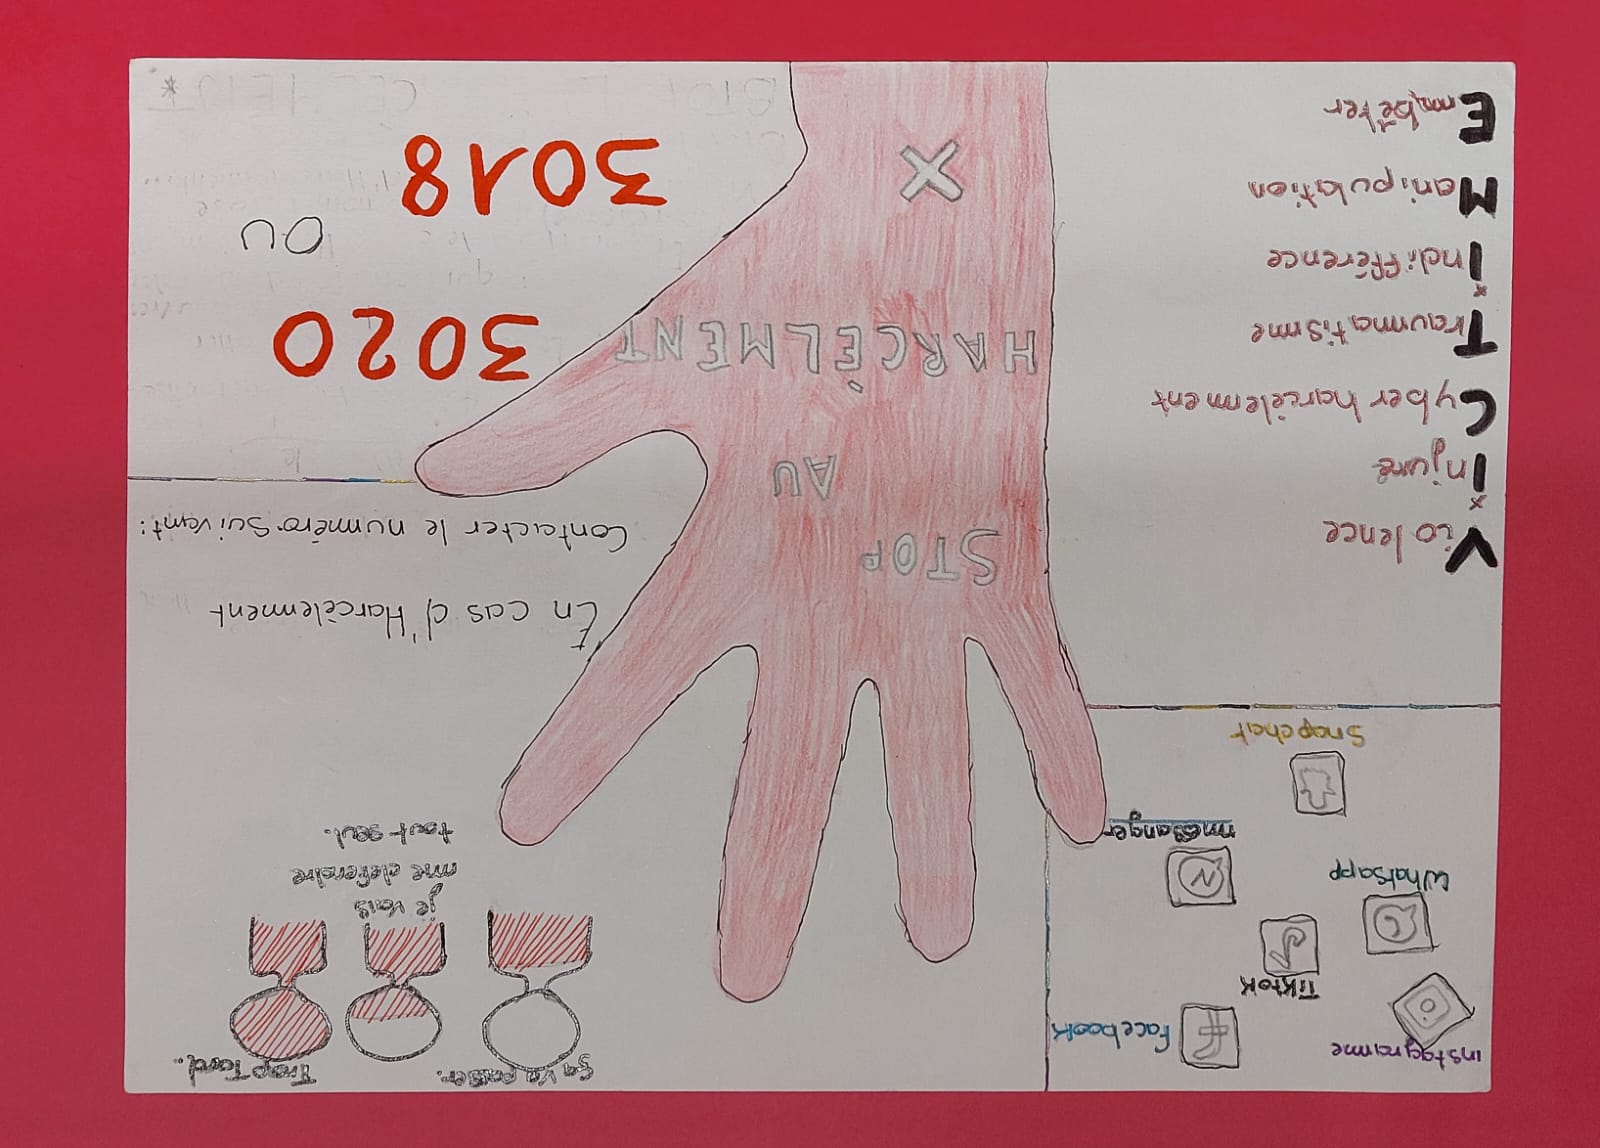 instagramme
Facebook
Tiktok
Whatsapp
messanger
Snapchat
ça va passer.
je vais
me defendre
tout seul.
Trop Tard..
Violence
Injure
Cyber harcèlement
Traumatisme
Indifférence
Manipulation
Embêter
STOP
AU
HARCÈLMENT
En cas d'Harcèlement
Contacter le numéro suivant:
3020
OU
3018